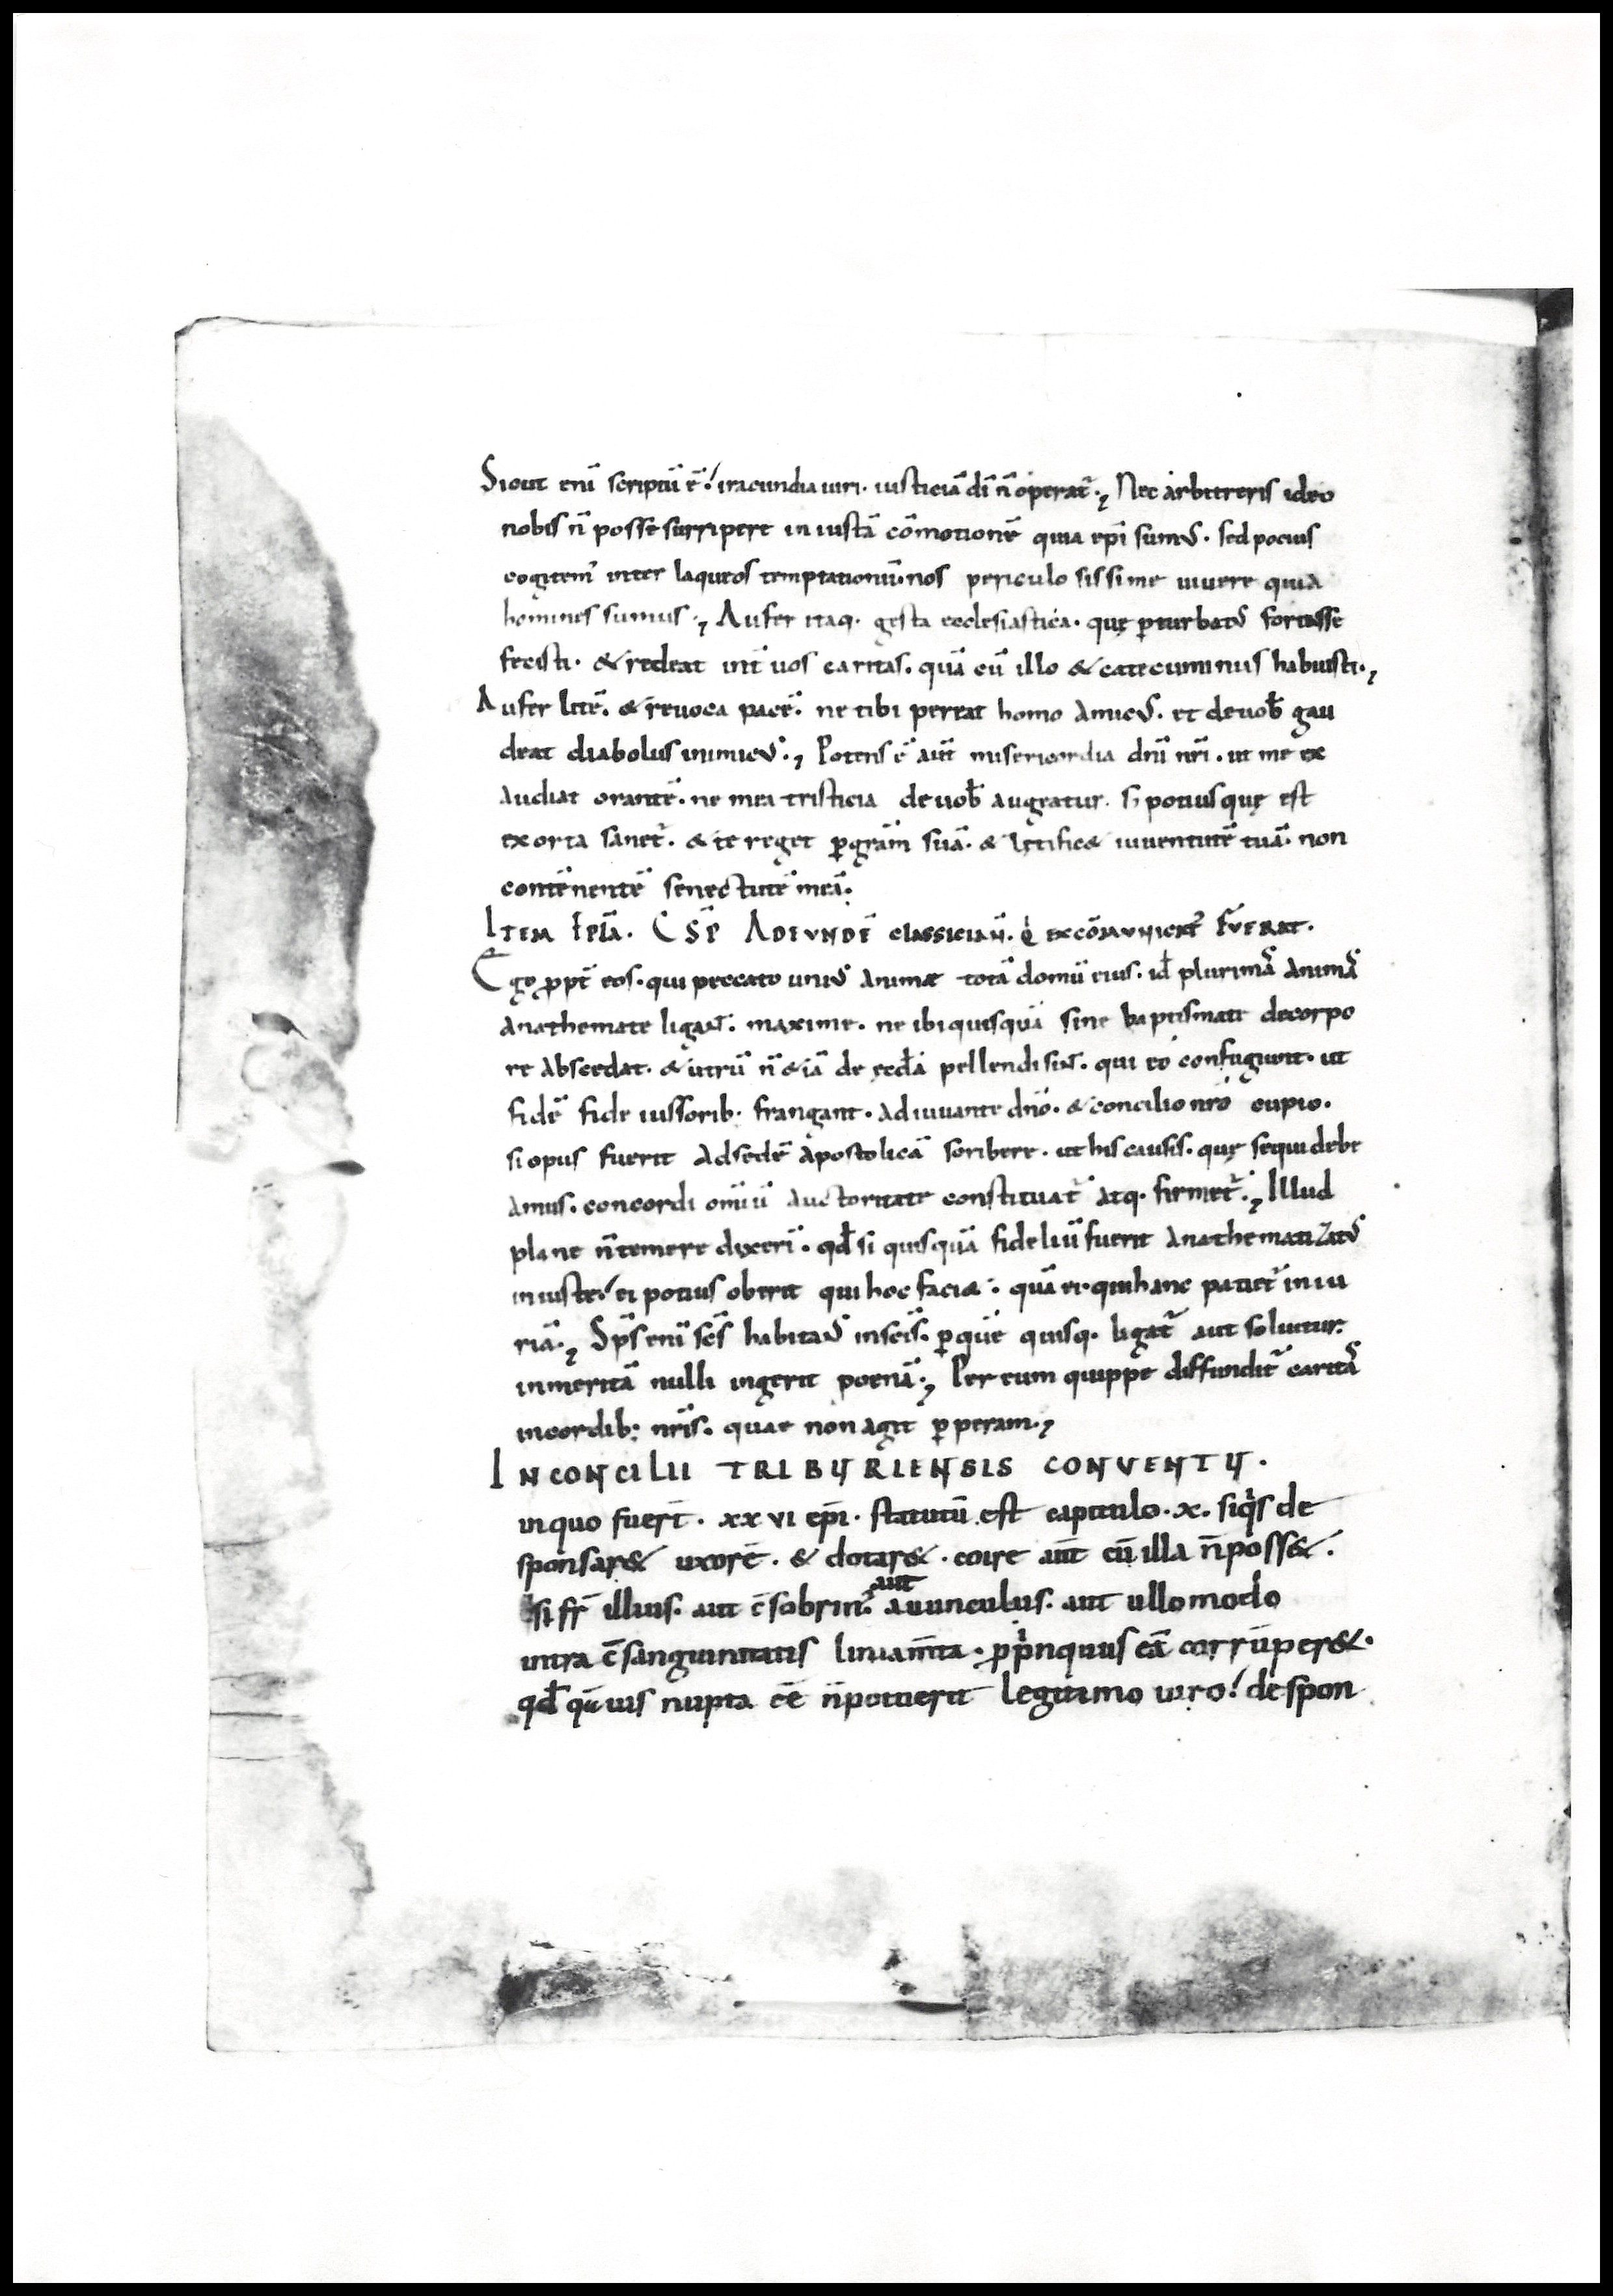 Sicut enī scriptū ē! iracundia uiri· iusticiā dī n̄ operat᷑·, Nec arbitreris ideo
nobis n̄ posse surripere in iustā cōmotionē quia ep̄i sumꝰ· sed pocius
cogitemꝰ inter laqueos temptationū nos periculo sissime uiuere quia
homines sumus·, Aufer itaq· gesta ecclesiastica· quę ꝑturbatꝰ fortasse
fecisti· & redeat int̄ uos caritas· quā cū illo & catecuminus habuisti·,
Aufer litē· & reuoca pacē· ne tibi pereat homo amicꝰ· et de uob̄ gau
deat diabolus inimicꝰ·, Potens ē aut̄ misericordia dn̄i nr̄i· ut me ex
audiat orantē· ne mea tristicia de uob̄ augeatur· s; potius quę est
exorta sanet᷑· & te reget ꝑ gr̄am suā· & lętific& iuuentutē tuā· non
contēnentē senectutē meā·
Item ep̄la· C S P Adiundē classicianū· q̇ excōmunicatꝰ fuerat·
Ego ꝓpt̄ eos· qui peccato uniꝰ animae totā domū eius· id̄ plurimaꝝ animaꝝ
anathemate ligant̄· maxime· ne ibi quisquā sine baptismate de corpo
re abscedat· & utrū n̄ &iā de ęccl̄a pellendi sint̄· qui eo confugiunt· ut
fidē fide iussorib; frangant· adiuuante dn̄o· & concilio nr̄o cupio·
si opus fuerit ad sedē apostolicā scribere· ut his causis· quę sequi debe
amus· concordi om̄iū auctoritate constituat᷑ atq· firmet᷑·, Illud
plane n̄ temere dixerī· qd̄ si quisquā fideliū fuerit anathematizatꝰ
iniuste! ei potius oberit qui hoc faci&· quā ei· qui hanc patiet᷑ iniu
riā·, Sp̄s enī sc̄s habitaꝰ in sc̄is· ꝑ quē quisq· ligat᷑ aut soluitur·
inmeritā nulli ingerit poenā·, Per eum quippe diffundit᷑ caritaꝰ
in cordib; nr̄is· quae non agit ꝑperam·,
IN CONCILII TRIBURIENSIS CONVENTU·
in quo fuer̄t· xxvi ep̄i· statutū est capitulo· x· siq̇s de
sponsar& uxorē· & dotar&· coire aut̄ cū illa n̄ poss&·
si fr̄ illius· aut c̄sobrinꝰ aut auunculus· aut ullo modo
intra c̄sanguinitatis liniam̄ta· ꝓpinquus eā corrūper&·
qd̄ quāuis nupta eē n̄ potuerit legitimo uiro! despon